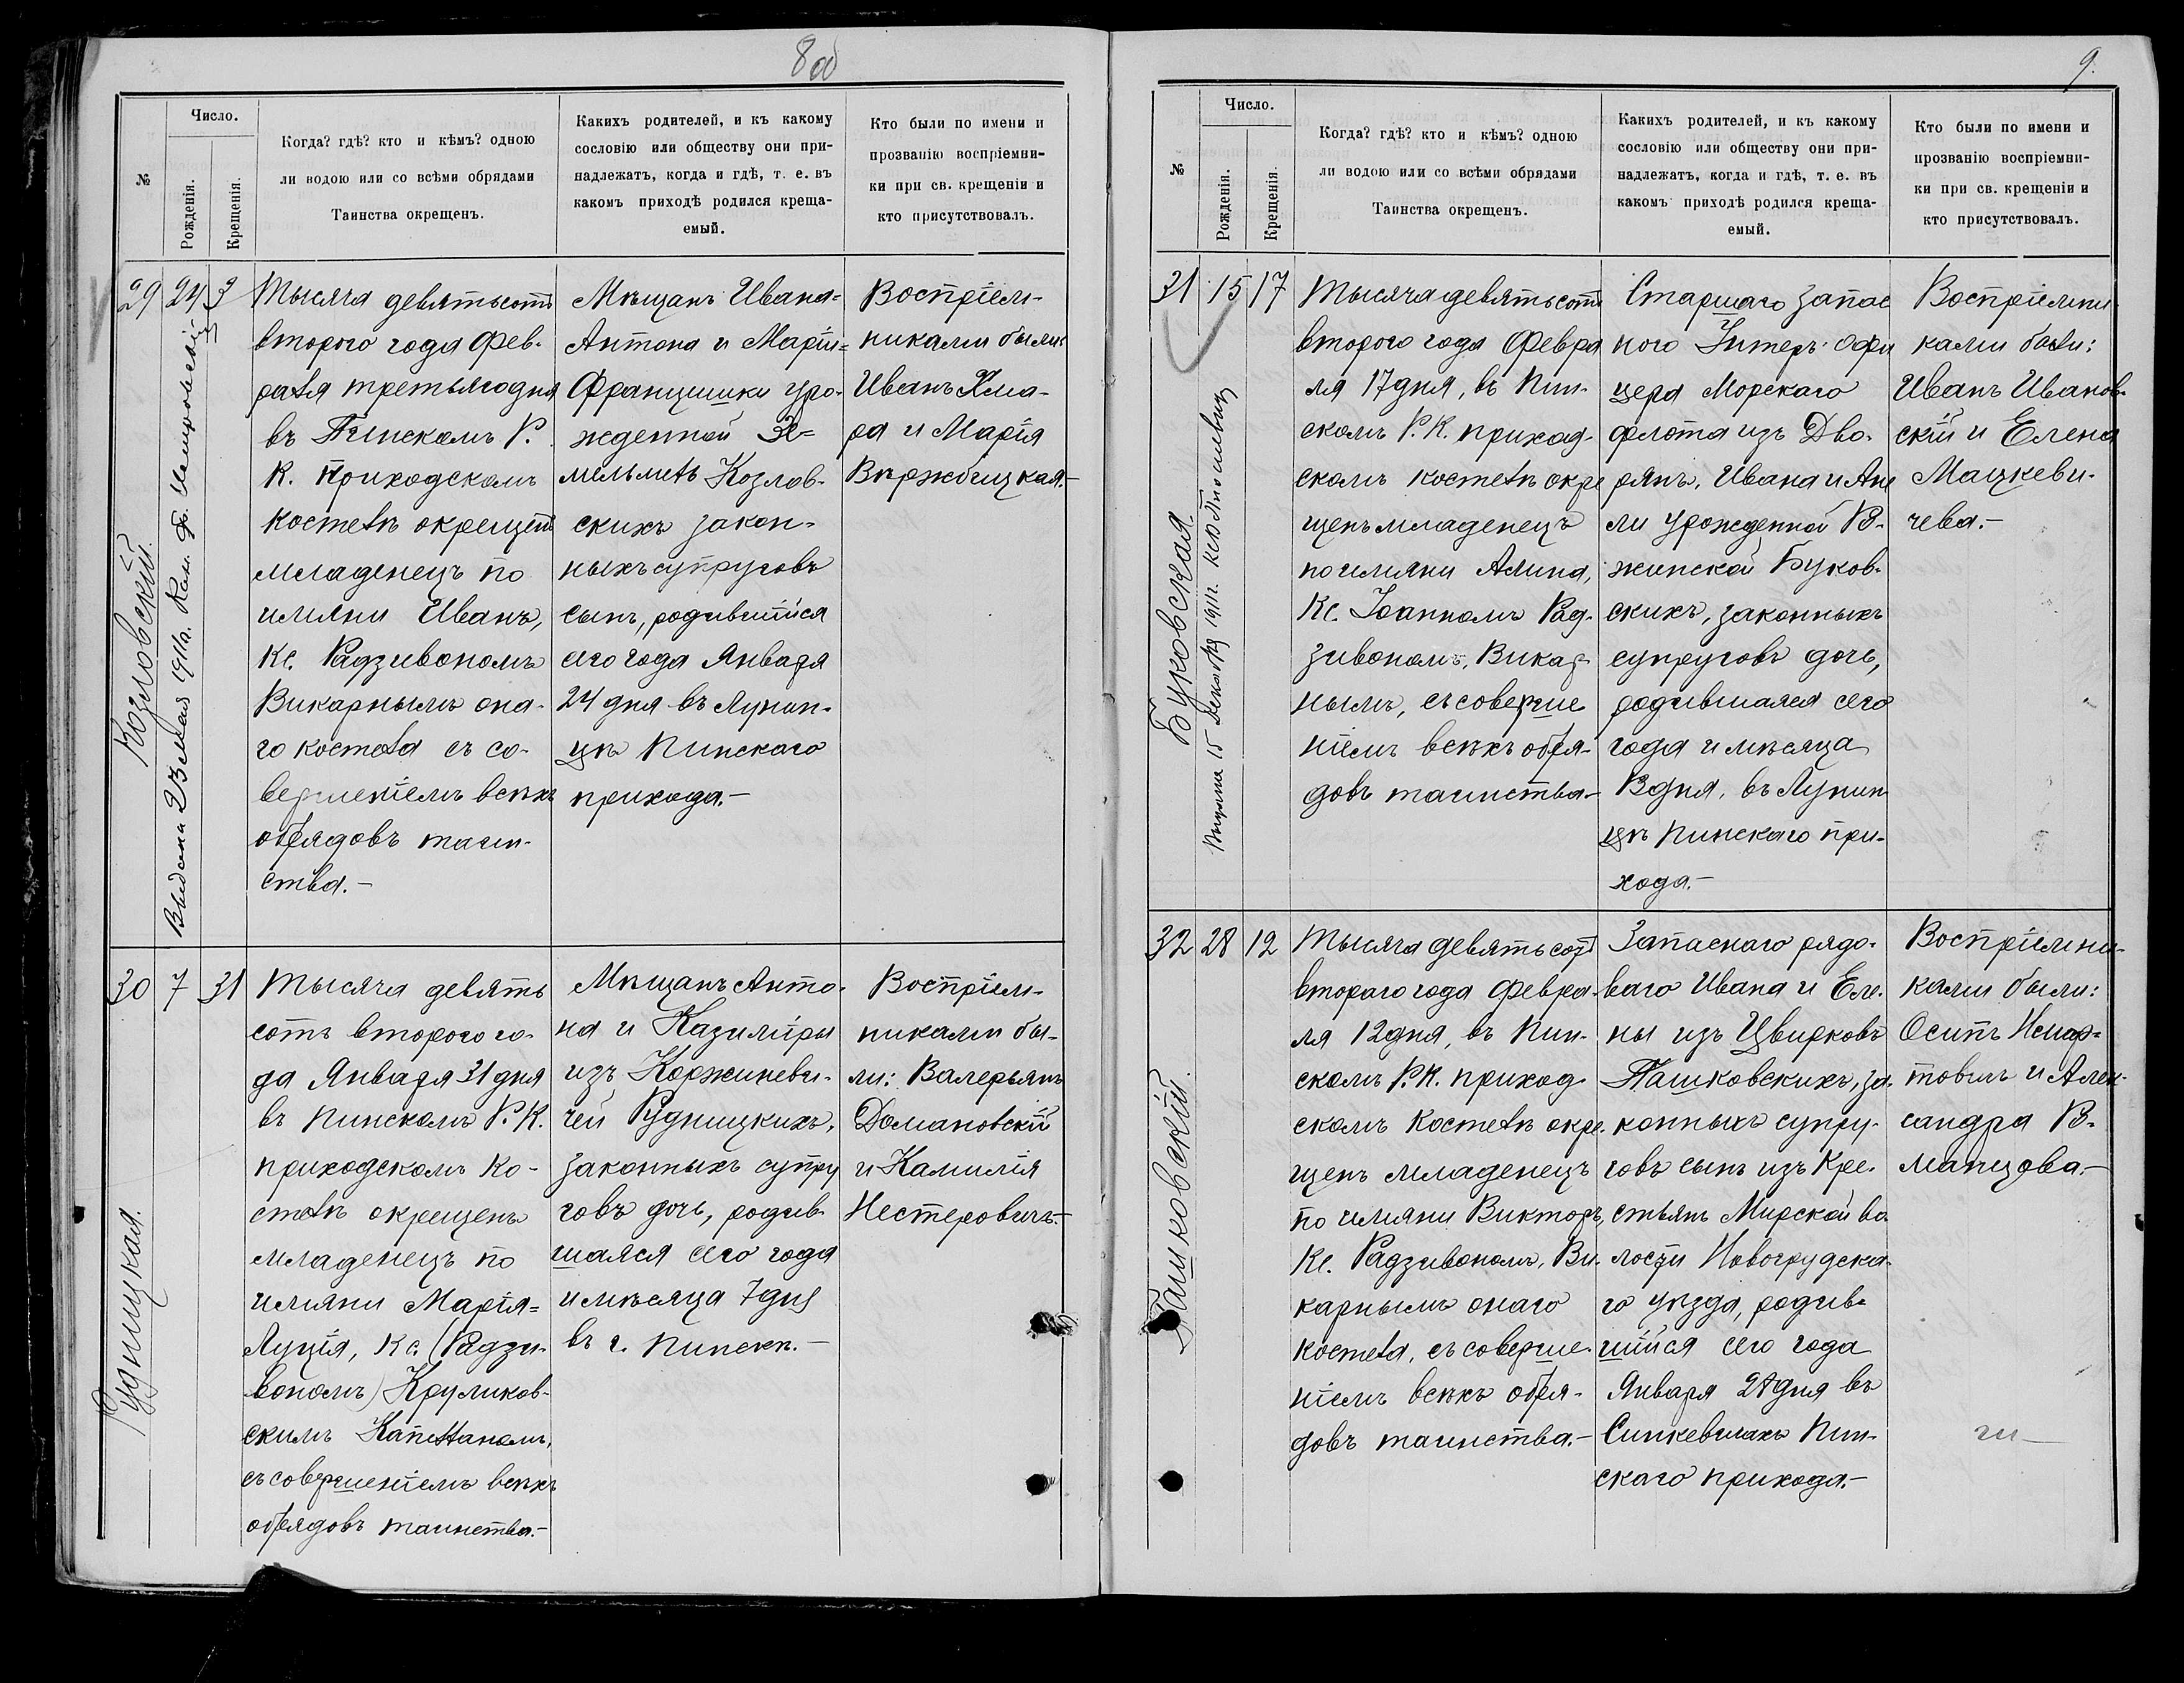 8 об
№
Число.
Рожденія.
Крещенія.
Когда? гдѣ? кто и кѣмъ? одною
ли водою или со всѣми обрядами
Таинства окрещенъ.
Какихъ родителей, и къ какому
сословію или обществу они при-
надлежатъ, когда и гдѣ, т. е. въ
какомъ приходѣ родился креща-
емый.
Кто были по имени и
прозванію воспріемни-
ки при св. крещеніи и
кто присутствовалъ.
29 24 3
Козловскій.
Выдана 23 мая 1911г. Кап. Ф.
Тысяча девятьсотъ
второго года Фев-
раля третьяго дня
въ Пинскомъ Р.
К. приходскомъ
костелѣ окрещенъ
младенецъ по
имяни Иванъ,
Кс. Радзивономъ
Викарнымъ она-
го костела съ со-
вершеніемъ всѣхъ
обрядовъ таин-
ства.-
Мѣщанъ Ивана=
Антона и Маріи=
Францишки уро-
жденной
Козлов-
скихъ закон-
ныхъ супруговъ
сынъ, родившійся
сего года Января
24 дня въ Лунин-
цѣ Пинскаго
прихода.-
Воспріем-
никами были:
Иванъ Хма-
ра и Марія
Вѣржбицкая.-
30 7 31
Рудницкая.
Тысяча девять
сотъ второго го-
да Января 31 дня
въ Пинскомъ Р. К.
приходскомъ ко-
стелѣ окрещенъ
младенецъ по
имяни Марія=
Луція, Кс. (Радзи-
вономъ) Круликов-
скимъ Капелланомъ,
съ совершеніемъ всѣхъ
обрядовъ таинства.-
Мѣщанъ Анто-
на и Казиміры
изъ Коржиневи-
чей Рудницкихъ,
законныхъ супру
говъ дочь, родив-
шаяся сего года
и мѣсяца 7 дня
въ г. Пинскѣ.-
Воспріем-
никами бы-
ли: Валерьянъ
Домановскій
и Камилія
Нестеровичъ.-
9.
№
Число.
Рожденія.
Крещенія.
Когда? гдѣ? кто и кѣмъ? одною
ли водою или со всѣми обрядами
Таинства окрещенъ.
Какихъ родителей, и къ какому
сословію или обществу они при-
надлежатъ, когда и гдѣ, т. е. въ
какомъ приходѣ родился креща-
емый.
Кто были по имени и
прозванію воспріемни-
ки при св. крещеніи и
кто присутствовалъ.
31 15 17
Буковская.
15 Декабря 1911г.
Тысяча девятьсотъ
второго года Февра
ля 17 дня, въ Пин-
скомъ Р. К. приход-
скомъ костелѣ окре
щенъ младенецъ
по имяни Алина,
Кс. Іоанномъ Рад-
зивономъ, Викар-
нымъ, съ соверше
ніемъ всѣхъ обря-
довъ таинства.-
Старшаго запас
ного Унтеръ-Офи
цера Морскаго
флота изъ Дво-
рянъ, Ивана и Ане
ли урожденной В-
жинской Буков-
скихъ, законныхъ
супруговъ дочь,
родившаяся сего
года и мѣсяца
дня, въ Лунин-
цѣ Пинскаго при-
хода.-
Воспріемни
ками были:
Иванъ Иванов-
скій и Елена
Мацкеви-
чева.-
32 28 12
Пашковскій.
Тысяча девятьсотъ
втораго года Февра-
ля 12 дня, въ Пин-
скомъ Р. К. приход-
скомъ костелѣ окре-
щенъ младенецъ
по имяни Викторъ,
Кс. Радзивономъ, Ви-
карнымъ онаго
костела, съ соверше-
ніемъ всѣхъ обря-
довъ таинства.-
Запаснаго рядо-
ваго Ивана и Еле-
ны изъ Цвирковъ
Пашковскихъ, за-
конныхъ супру-
говъ сынъ изъ кре-
стьянъ Мирской во-
лости Новогрудска-
го уѣзда, родив-
шійся сего года
Января 28 дня въ
Синкевичахъ Пин-
скаго прихода.-
Воспріемни-
ками были:
Осипъ
и Алек-
сандра В-
манцова.-